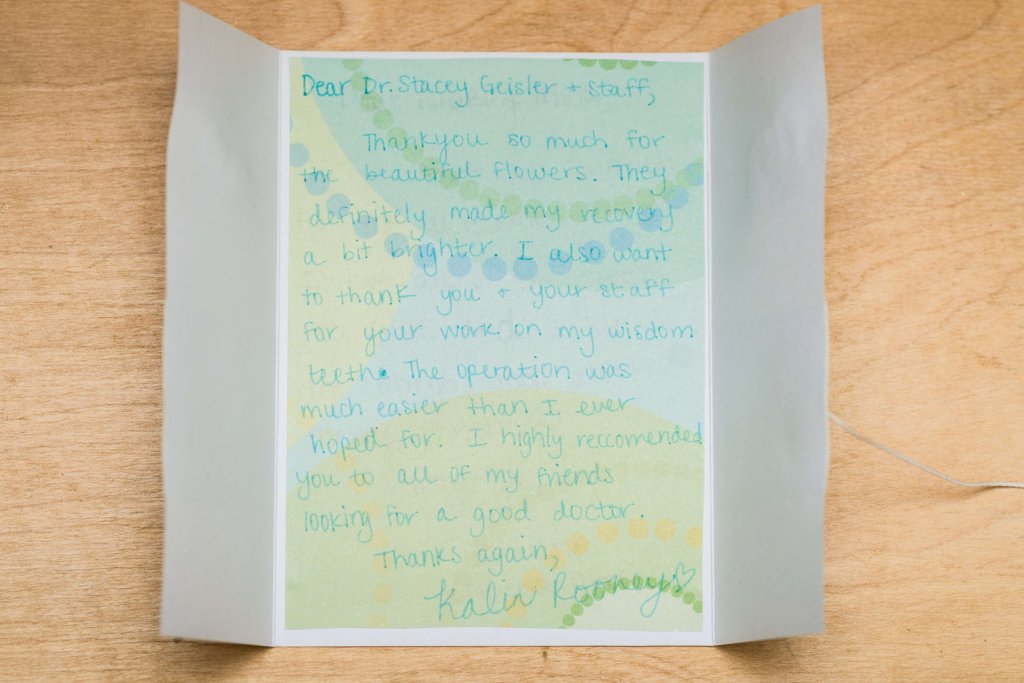 Dear Dr. Stacey Geisler + staff,
Thankyou so much for
the beautiful flowers. They
definitely made my recovery
a bit brighter. I also want
to thank you + your staff
for your work on my wisdom
teeth. The operation was
much easier than I ever
hoped for. I highly reccomended
you to all of my friends
looking for a good doctor.
Thanks again,
Rooney